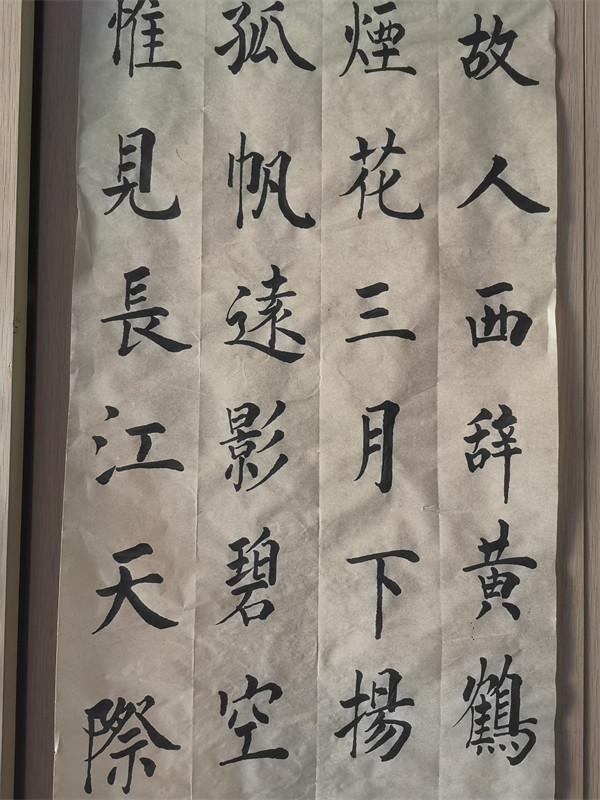 故人西辞黄鶴
煙花三月下揚
孤帆遠影碧空
惟見長江天際